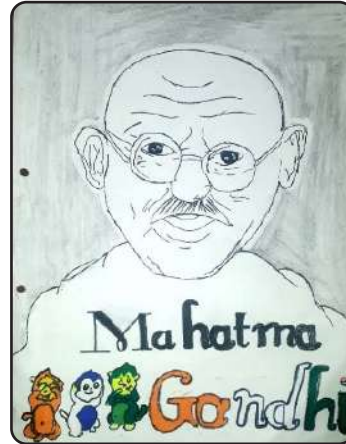 Mahatma
Gandhi